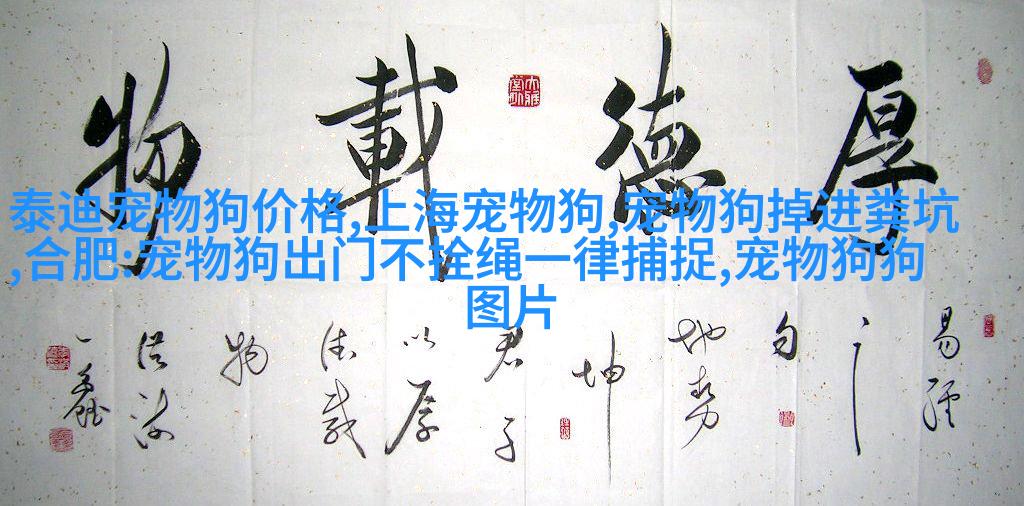 厚德載物
泰迪宠物狗价格,上海宠物狗,宠物狗掉进粪坑
,合肥:宠物狗出门不拴绳一律捕捉,宠物狗狗
图片
易经
之
句
地势
坤
君子
以厚
德载
物
一鑫